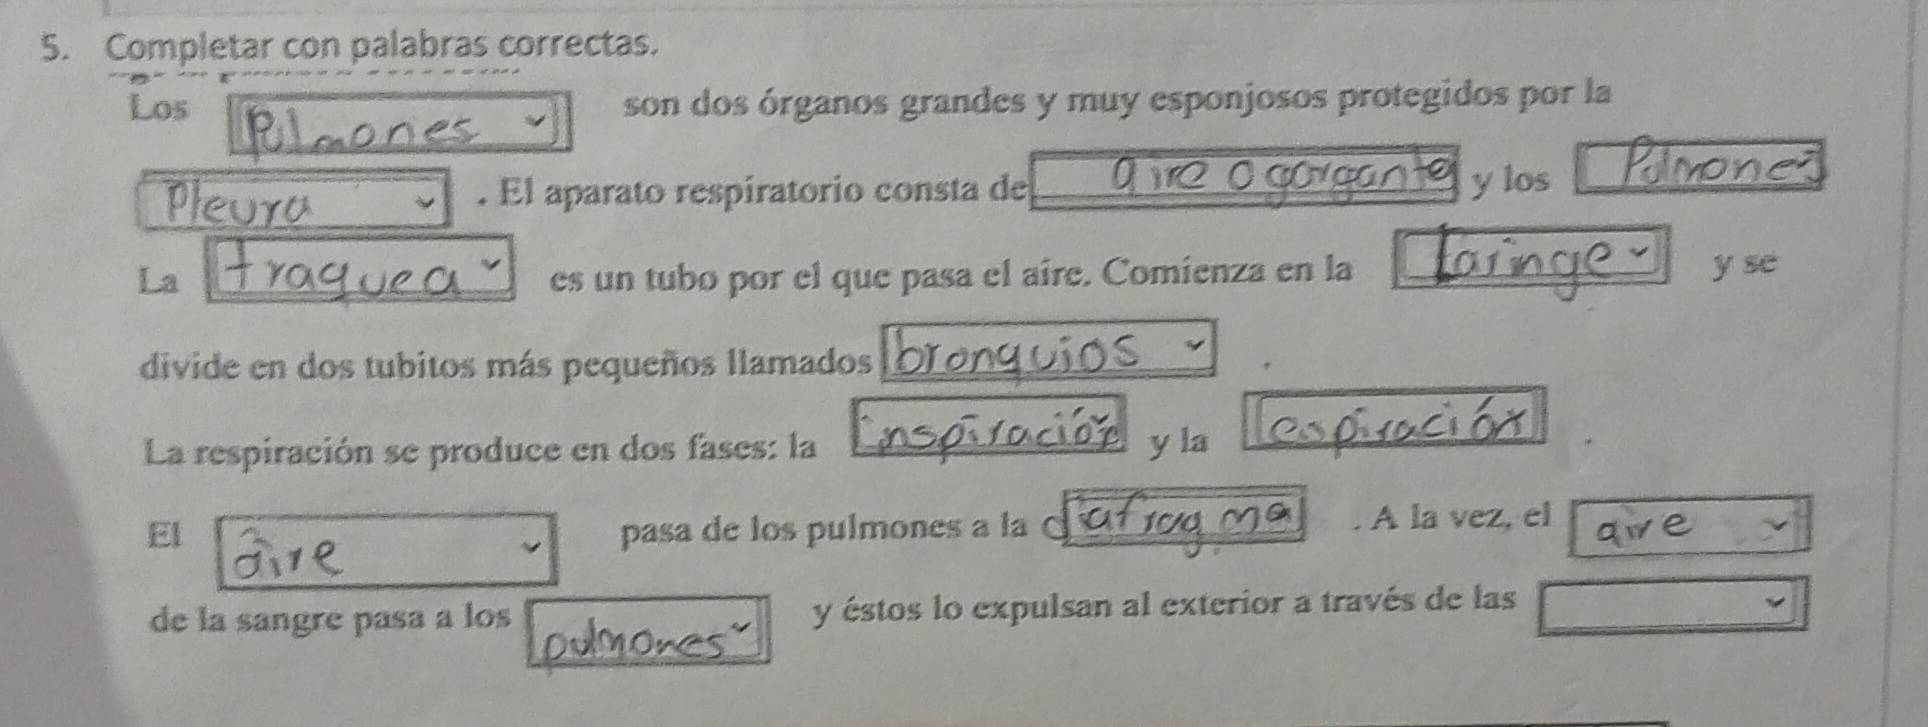 5. Completar con palabras correctas.
Los Pulmones son dos órganos grandes y muy esponjosos protegidos por la
Pleura . El aparato respiratorio consta de aire o gargante y los Pulmones
La traquea es un tubo por el que pasa el aire. Comienza en la laringe y se
divide en dos tubitos más pequeños llamados bronquios .
La respiración se produce en dos fases: la inspiración y la espiración .
El aire pasa de los pulmones a la diafragma . A la vez, el aire
de la sangre pasa a los pulmones y éstos lo expulsan al exterior a través de las